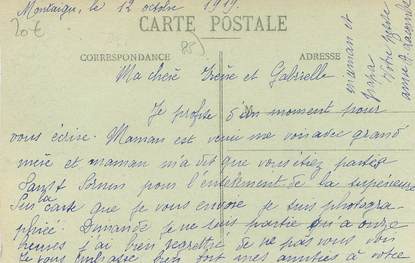 Montaigu, le 12 octobre 1919.
20€
CARTE POSTALE
CORRESPONDANCE
ADRESSE
Ma chère Irène et Gabrielle
Je profite d'un moment pour
vous écrire. Maman est venue me voir avec grand
mère et maman m'a dit que vous étiez partie
Saint Sornin pour l'enterrement de la supérieure
Sur la carte que je vous envoie je suis photogra-
phiée. Dimanche je ne suis partie qu'a onze
heures j'ai bien regretté de ne pas vous voir
Je vous embrasse bien fort mes amitiés à votre
maman et
papa
votre